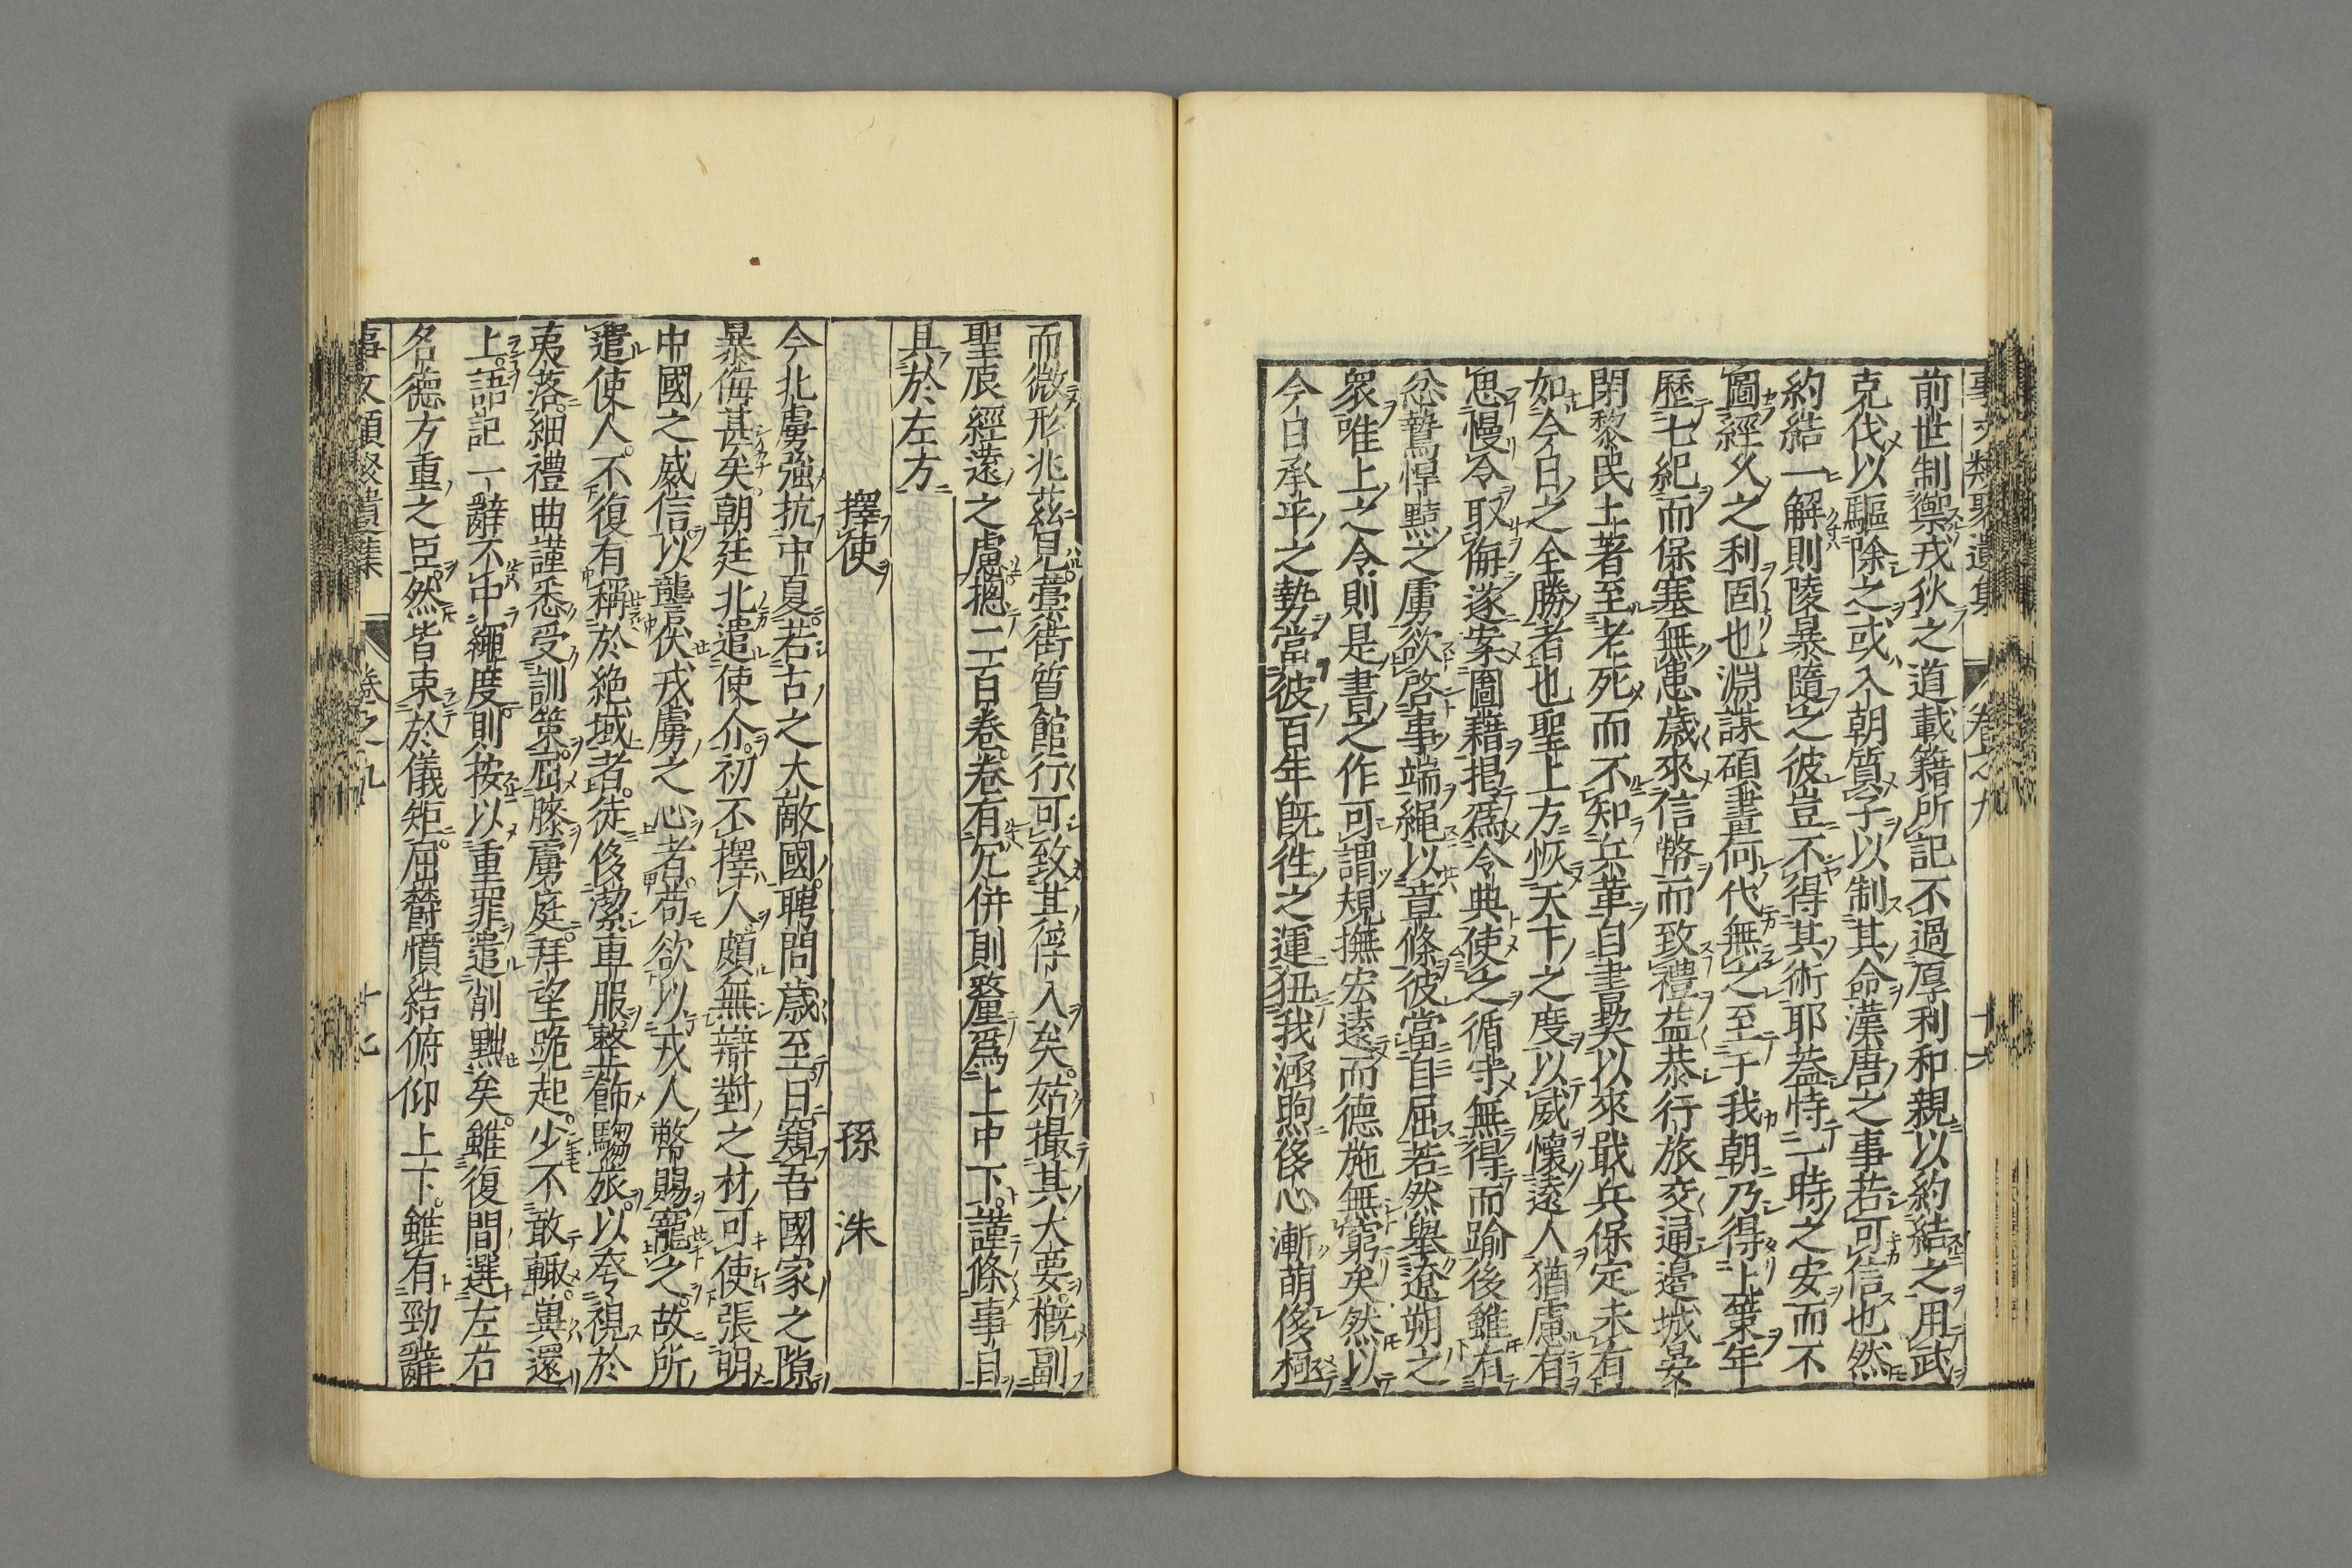 事文類聚遺集 卷之九 十六
前世制禦戎狄之道載籍所記不過厚利和親以約結之用武
克伐以驅除之或入朝質子以制其命漢唐之事若可信也然
約結一解則陵暴隨之彼豈不得其術耶蓋恃一時之安而不
圖經久之利固也淵謀碩畫何代無之至于我朝乃得上策年
歷七紀而保塞無患歲來信幣而致禮益恭行旅交通邊城晏
閉黎民土著至老死而不知兵革自書契以來戢兵保定未有
如今日之全勝者也聖上方恢天下之度以威懷遠人猶慮有
思慢令取侮遂案圖藉揭爲令典使之循守無得而踰後雖有
忿鷙悍黠之虜欲啓事端繩以章條彼當自屈若然舉遼朔之
衆唯上之令則是書之作可謂規撫宏遠而德施無窮矣然以
今日承平之勢當彼百年旣徃之運狃我涵煦後心漸萌侈極
而微形兆茲見藁街質館行可致其俘入矣姑撮其大要槪副
聖扆經遠之慮摠二百卷卷有冗併則釐爲上中下謹條事目
具於左方
擇使 孫洙
今北虜強抗中夏若古之大敵國聘問歲至日窺吾國家之隙
暴侮甚矣朝廷北遣使介初不擇人頗無辯對之材可使張明
中國之威信以讋伏戎虜之心者苟欲以戎人幣賜寵之故所
遣使人不復有稱於絶域者徒侈潔車服整飾騶旅以夸視於
夷落細禮曲謹悉受訓策屈膝虜庭拜望跪起少不敢輙異還
上語記一辭不中繩度則按以重罪遣削黜矣雖復間選左右
名德方重之臣然皆束於儀矩屈欝憤結俯仰上下雖有勁辭
事文類聚遺集 卷之九 十七